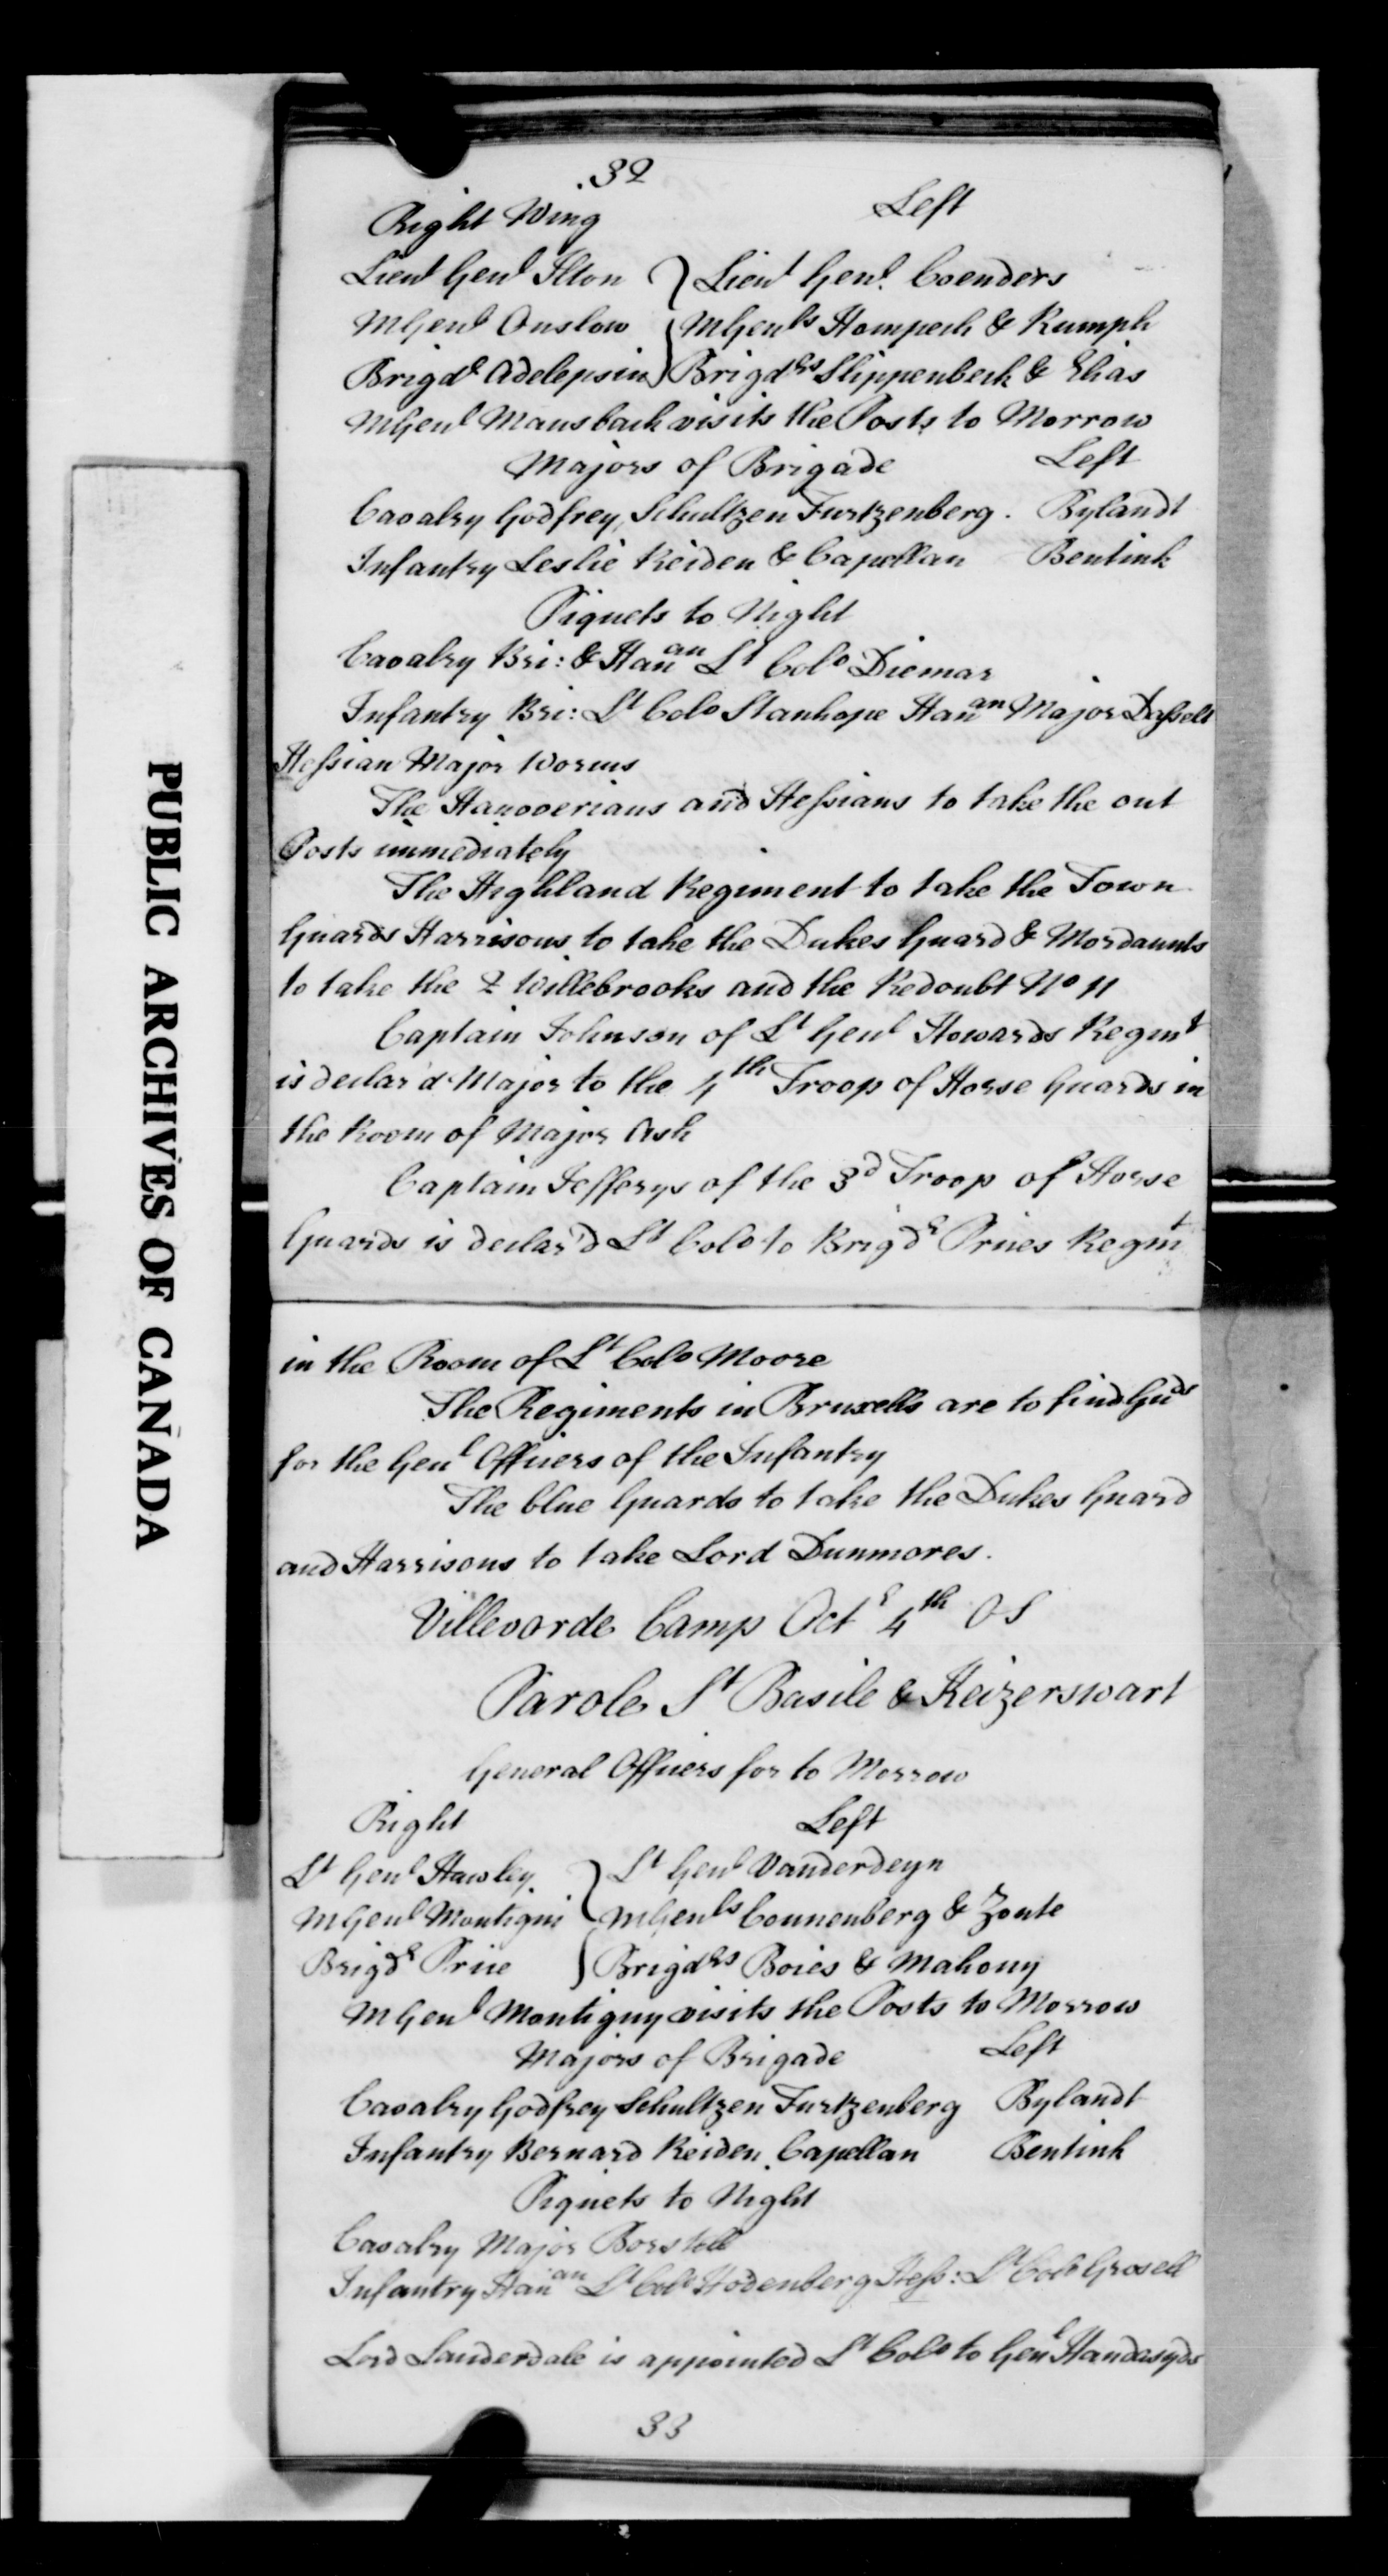 32
Right Wing Left
Lieut Genl Ilton Lieut Genl Coenders
MGenl Onslow MGenls Hompech & Rumph
Brigdr Adelepsin Brigdrs Slippenbeck & Elias
MGenl Mansback visits the Posts to Morrow
Majors of Brigade Left
Cavalry Godfrey, Schultzen Furtzenberg. Bylandt
Infantry Leslie Reiden & Capellan Bentink
Piquets to Night
Cavalry Bri: & Hanan Lt Colo Diemar
Infantry Bri: Lt Colo Stanhope Hanan Major Dassell
Hessian Major Worms
The Hanoverians and Hessians to take the out
Posts immediately
The Highland Regiment to take the Town
Guards Harrisons to take the Dukes Guard & Mordaunts
to take the 2 Willebrooks and the Redoubt No 11
Captain Johnson of Lt Genl Howards Regmt
is declar'd Major to the 4th Troop of Horse Guards in
the Room of Major Ash
Captain Jefferys of the 3d Troop of Horse
Guards is declar'd Lt Colo to Brigdr Prices Regmt
in the Room of Lt Colo Moore
The Regiments in Bruxells are to find Guds
for the Genl Officers of the Infantry
The blue Guards to take the Dukes Guard
and Harrisons to take Lord Dunmores.
Villevorde Camp Octr 4th OS
Parole St Basile & Keizerswart
General Officers for to Morrow
Right Left
Lt Genl Hawley Lt Genl Vanderdeyn
MGenl Montigni MGenls Counenberg & Zoute
Brigdr Price Brigdrs Boies & Mahony
MGenl Montigny visits the Posts to Morrow
Majors of Brigade Left
Cavalry Godfrey Schultzen Furtzenberg Bylandt
Infantry Bernard Reiden Capellan Bentink
Piquets to Night
Cavalry Major Borstell
Infantry Hanan Lt Colo Hodenberg Hess: Lt Colo Grosell
Lord Lauderdale is appointed Lt Colo to Genl Handasyds
33
PUBLIC ARCHIVES OF CANADA